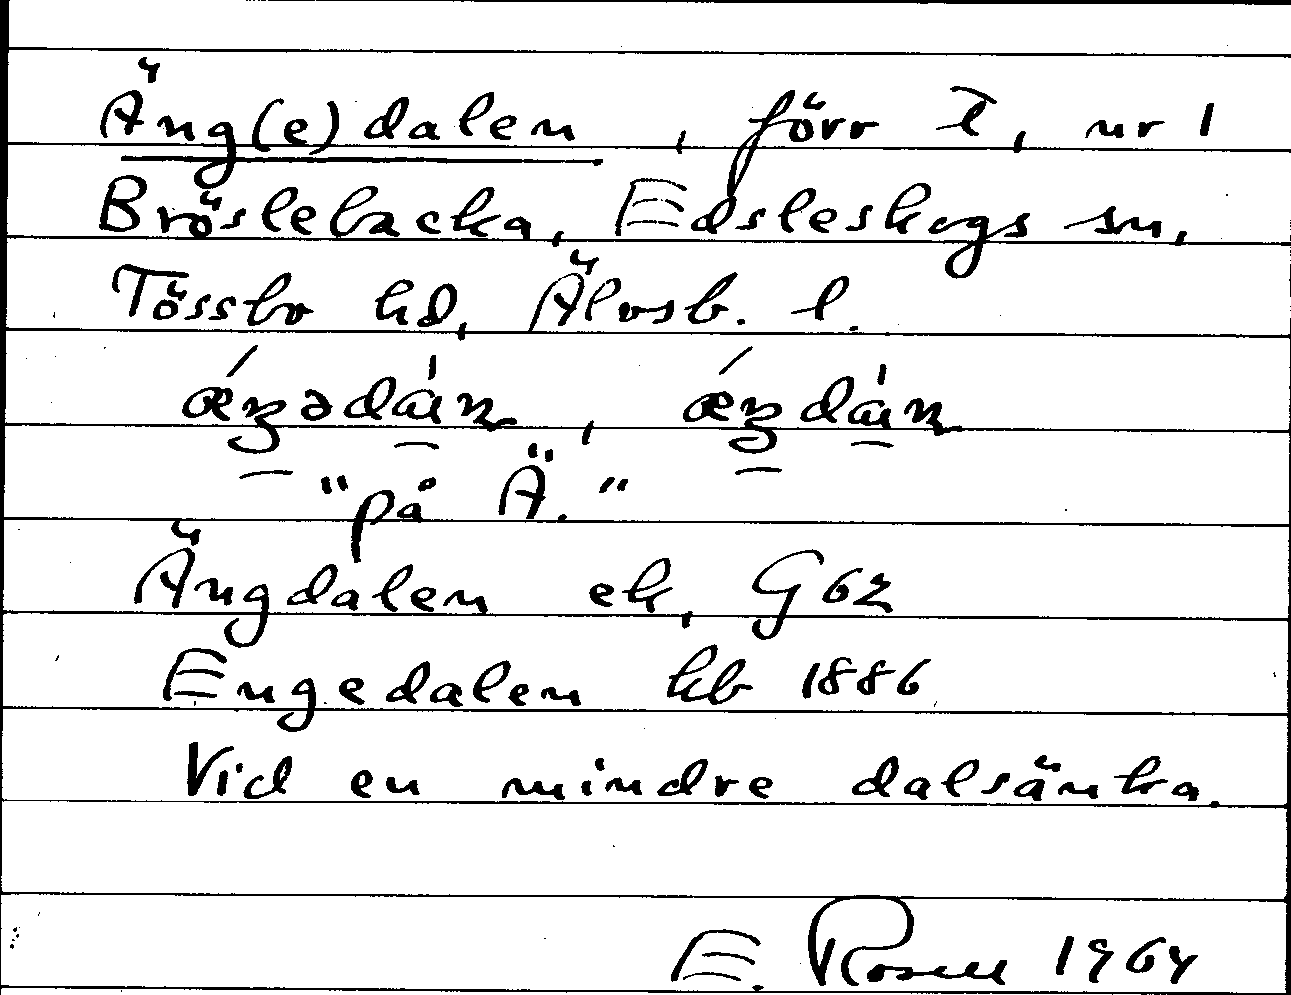 Äng(e)dalen, förr t, nr 1
Bröslebacka, Edsleskogs sn,
Tössbo hd, Älvsb. l.
"på Ä."
Ängdalen ek, G 62
Engedalen hb 1886
Vid en mindre dalsänka.
E. Rosell 1964